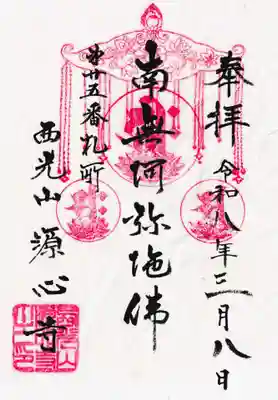 奉拝
令和八年三月八日
南無阿弥陁佛
第廿五番札所
西光山
源心寺